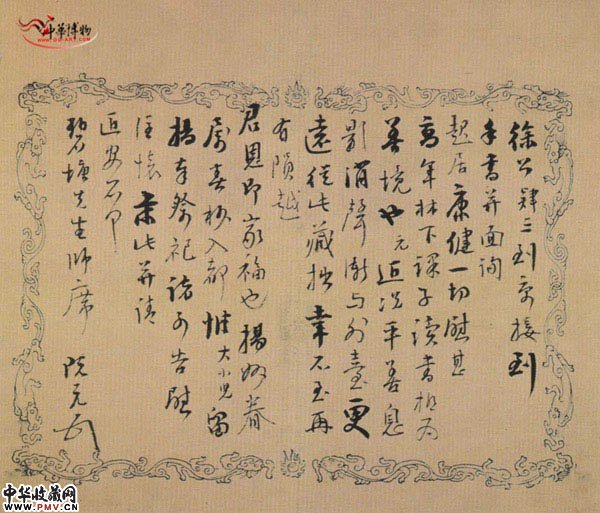 中华博物
徐公肄三到京接到
手書并面詢
起居康健一切慰甚
高年林下課子讀書極為
善境也元近況平善息
影消聲漸与外臺更
遠從此藏拙幸不至再
有隕越
君恩即家福也揚州眷
屬春初入都惟大小兒留
揚奉祭祀諸可告慰
注懷肅此并請
近安不
碧塘先生師席 阮元
中华收藏网
WWW.PMV.CN